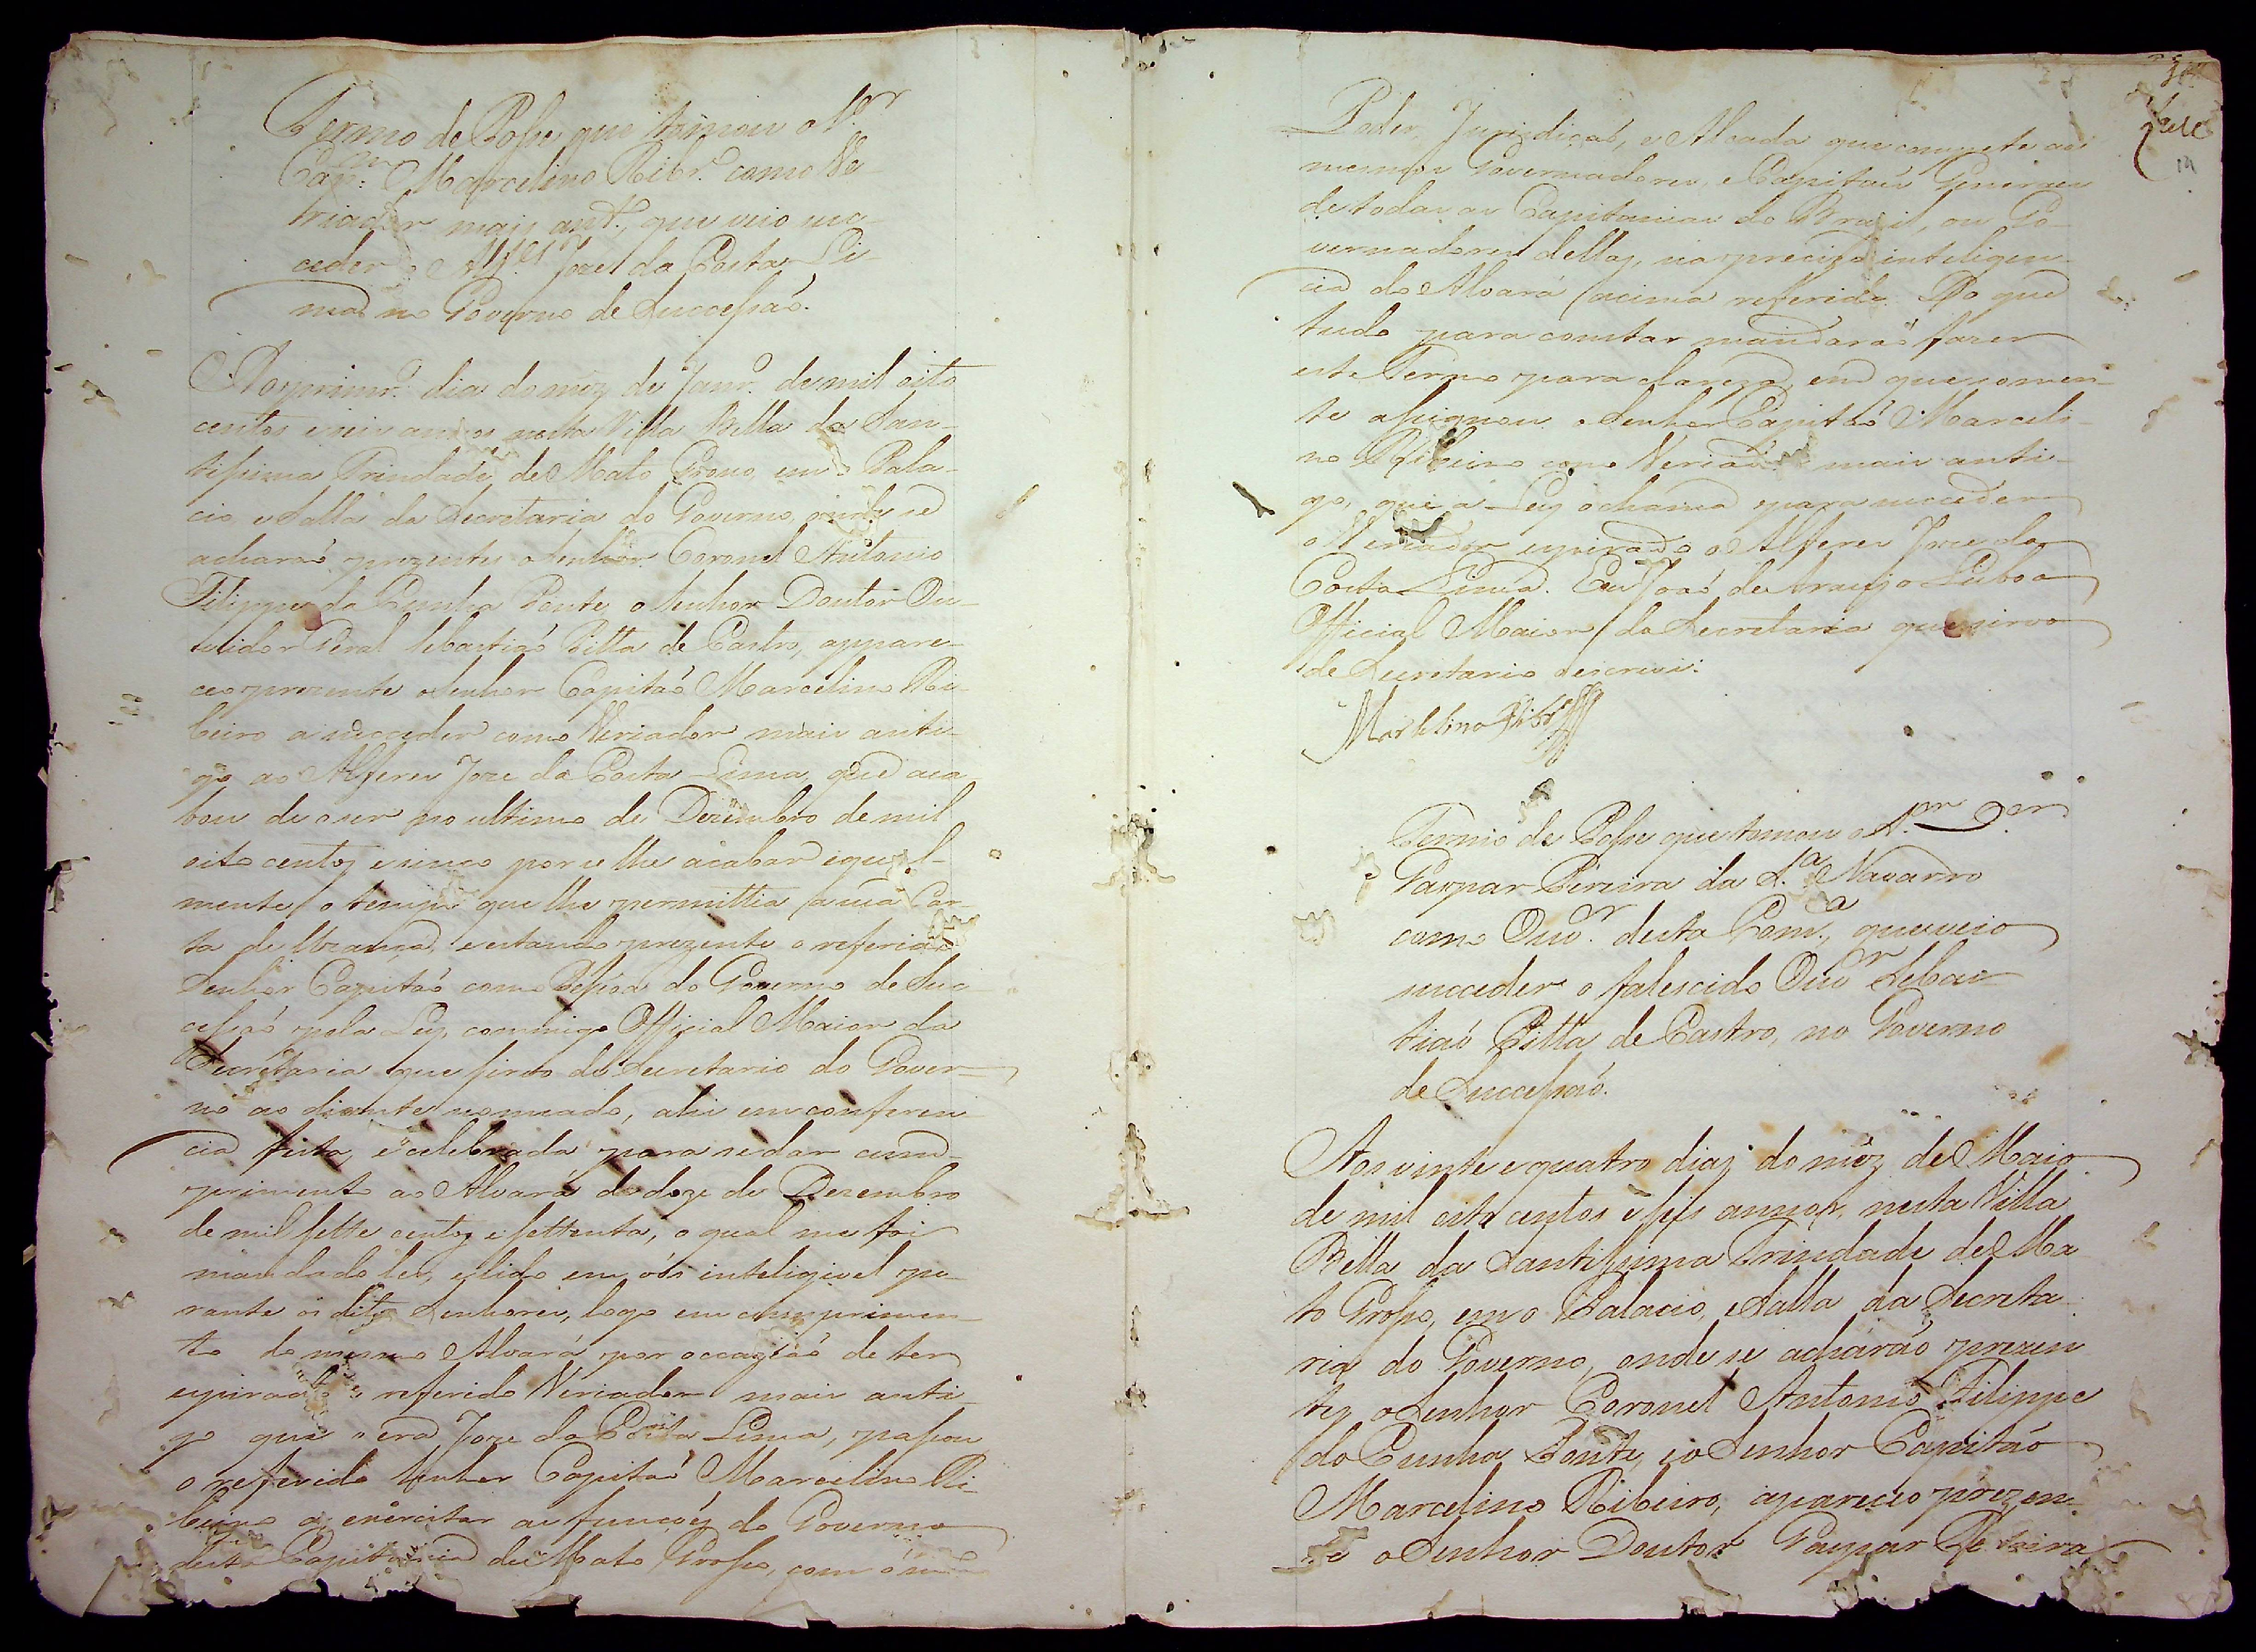 Termo de Posse que tomou o Sr
Capm. Marcelino Ribr.o como Ve-
riador mais ant.o, que veio su-
ceder o Alfes Joze da Costa Li-
ma no Governo de Successaõ.
Ao primr.o dia do mez de Janr.o de mil oito
centos e seis annos nesta Villa Bella da San-
tissima Trindade de Mato Grosso, em o Pala-
cio, e Salla da Secretaria do Governo, onde se
acharaõ prezentes o Senhor Coronel Antonio
Filippe da Cunha Ponte, o Senhor Doutor Ou-
vidor Geral Sebastiaõ Pitta de Castro, appare-
ceo prezente o Senhor Capitaõ Marcelino Ri-
beiro a succeder como Veriador mais anti-
go ao Alferes Joze da Costa Lima, que aca-
bou de o ser no ultimo de Dezembro de mil
oito centos e sinco por se lhe acabar igual-
mente o tempo que lhe permittia a sua Car-
ta de Uzança, e estando prezente o referido
Senhor Capitaõ como Pessoa do Governo de Suc-
cessaõ pela Ley, commigo Official Maior da
Secretaria que sirvo de Secretario do Gover-
no ao diante nomeado, ahi em conferen-
cia feita, e celebrada para se dar cum-
primento ao Alvará de doze de Dezembro
de mil sette centos e settenta, o qual me foi
mandado ler, e lido em vós inteligivel pe-
rante os ditos Senhores, logo em cumprimen-
to do mesmo Alvará por occaziaõ de ter
espirado o referido Veriador mais anti-
go que o era Joze da Costa Lima, passou
o referido Senhor Capitaõ Marcelino Ri-
beiro a exercitar as funcoẽs do Governo
desta Capitania de Mato Grosso, com o
Poder, Jurisdicaõ, e Alcada que compete aos
mesmos Governadores, e Capitaẽs Generaes
de todas as Capitanias do Brazil, ou Go-
vernadores dellas, na preciza inteligen-
cia do Alvará acima referido. Do que
tudo para constar mandaraõ fazer
este Termo para clareza, em que somen-
te assignou o Senhor Capitaõ Marceli-
no Ribeiro como Veriador mais anti-
go, que a Ley o chama para succeder
o Veriador espirado o Alferes Joze da
Costa Lima. Eu Joaõ de Araujo Lisboa
Official Maior da Secretaria que sirvo
de Secretario o escrevi.
Marcelino Ribr.o
Termo de Posse que tomou o Sr. Dor.
Gaspar Pereira da S.a Navarro
como Ouvr. desta Comca, que veio
succeder o falescido Ouvr Sebas-
tiaõ Pitta de Castro, no Governo
de Successaõ.
Aos vinte e quatro dias do mêz de Maio
de mil oito centos e seis annos, nesta Villa
Bella da Santissima Trindade de Ma-
to Grosso, em o Palacio, e Salla da Secreta-
ria do Governo, onde se acharaõ prezen-
tes o Senhor Coronel Antonio Filippe
da Cunha Ponte, e o Senhor Capitaõ
Marcelino Ribeiro, apareceo prezen-
te o Senhor Doutor Gaspar Pereira